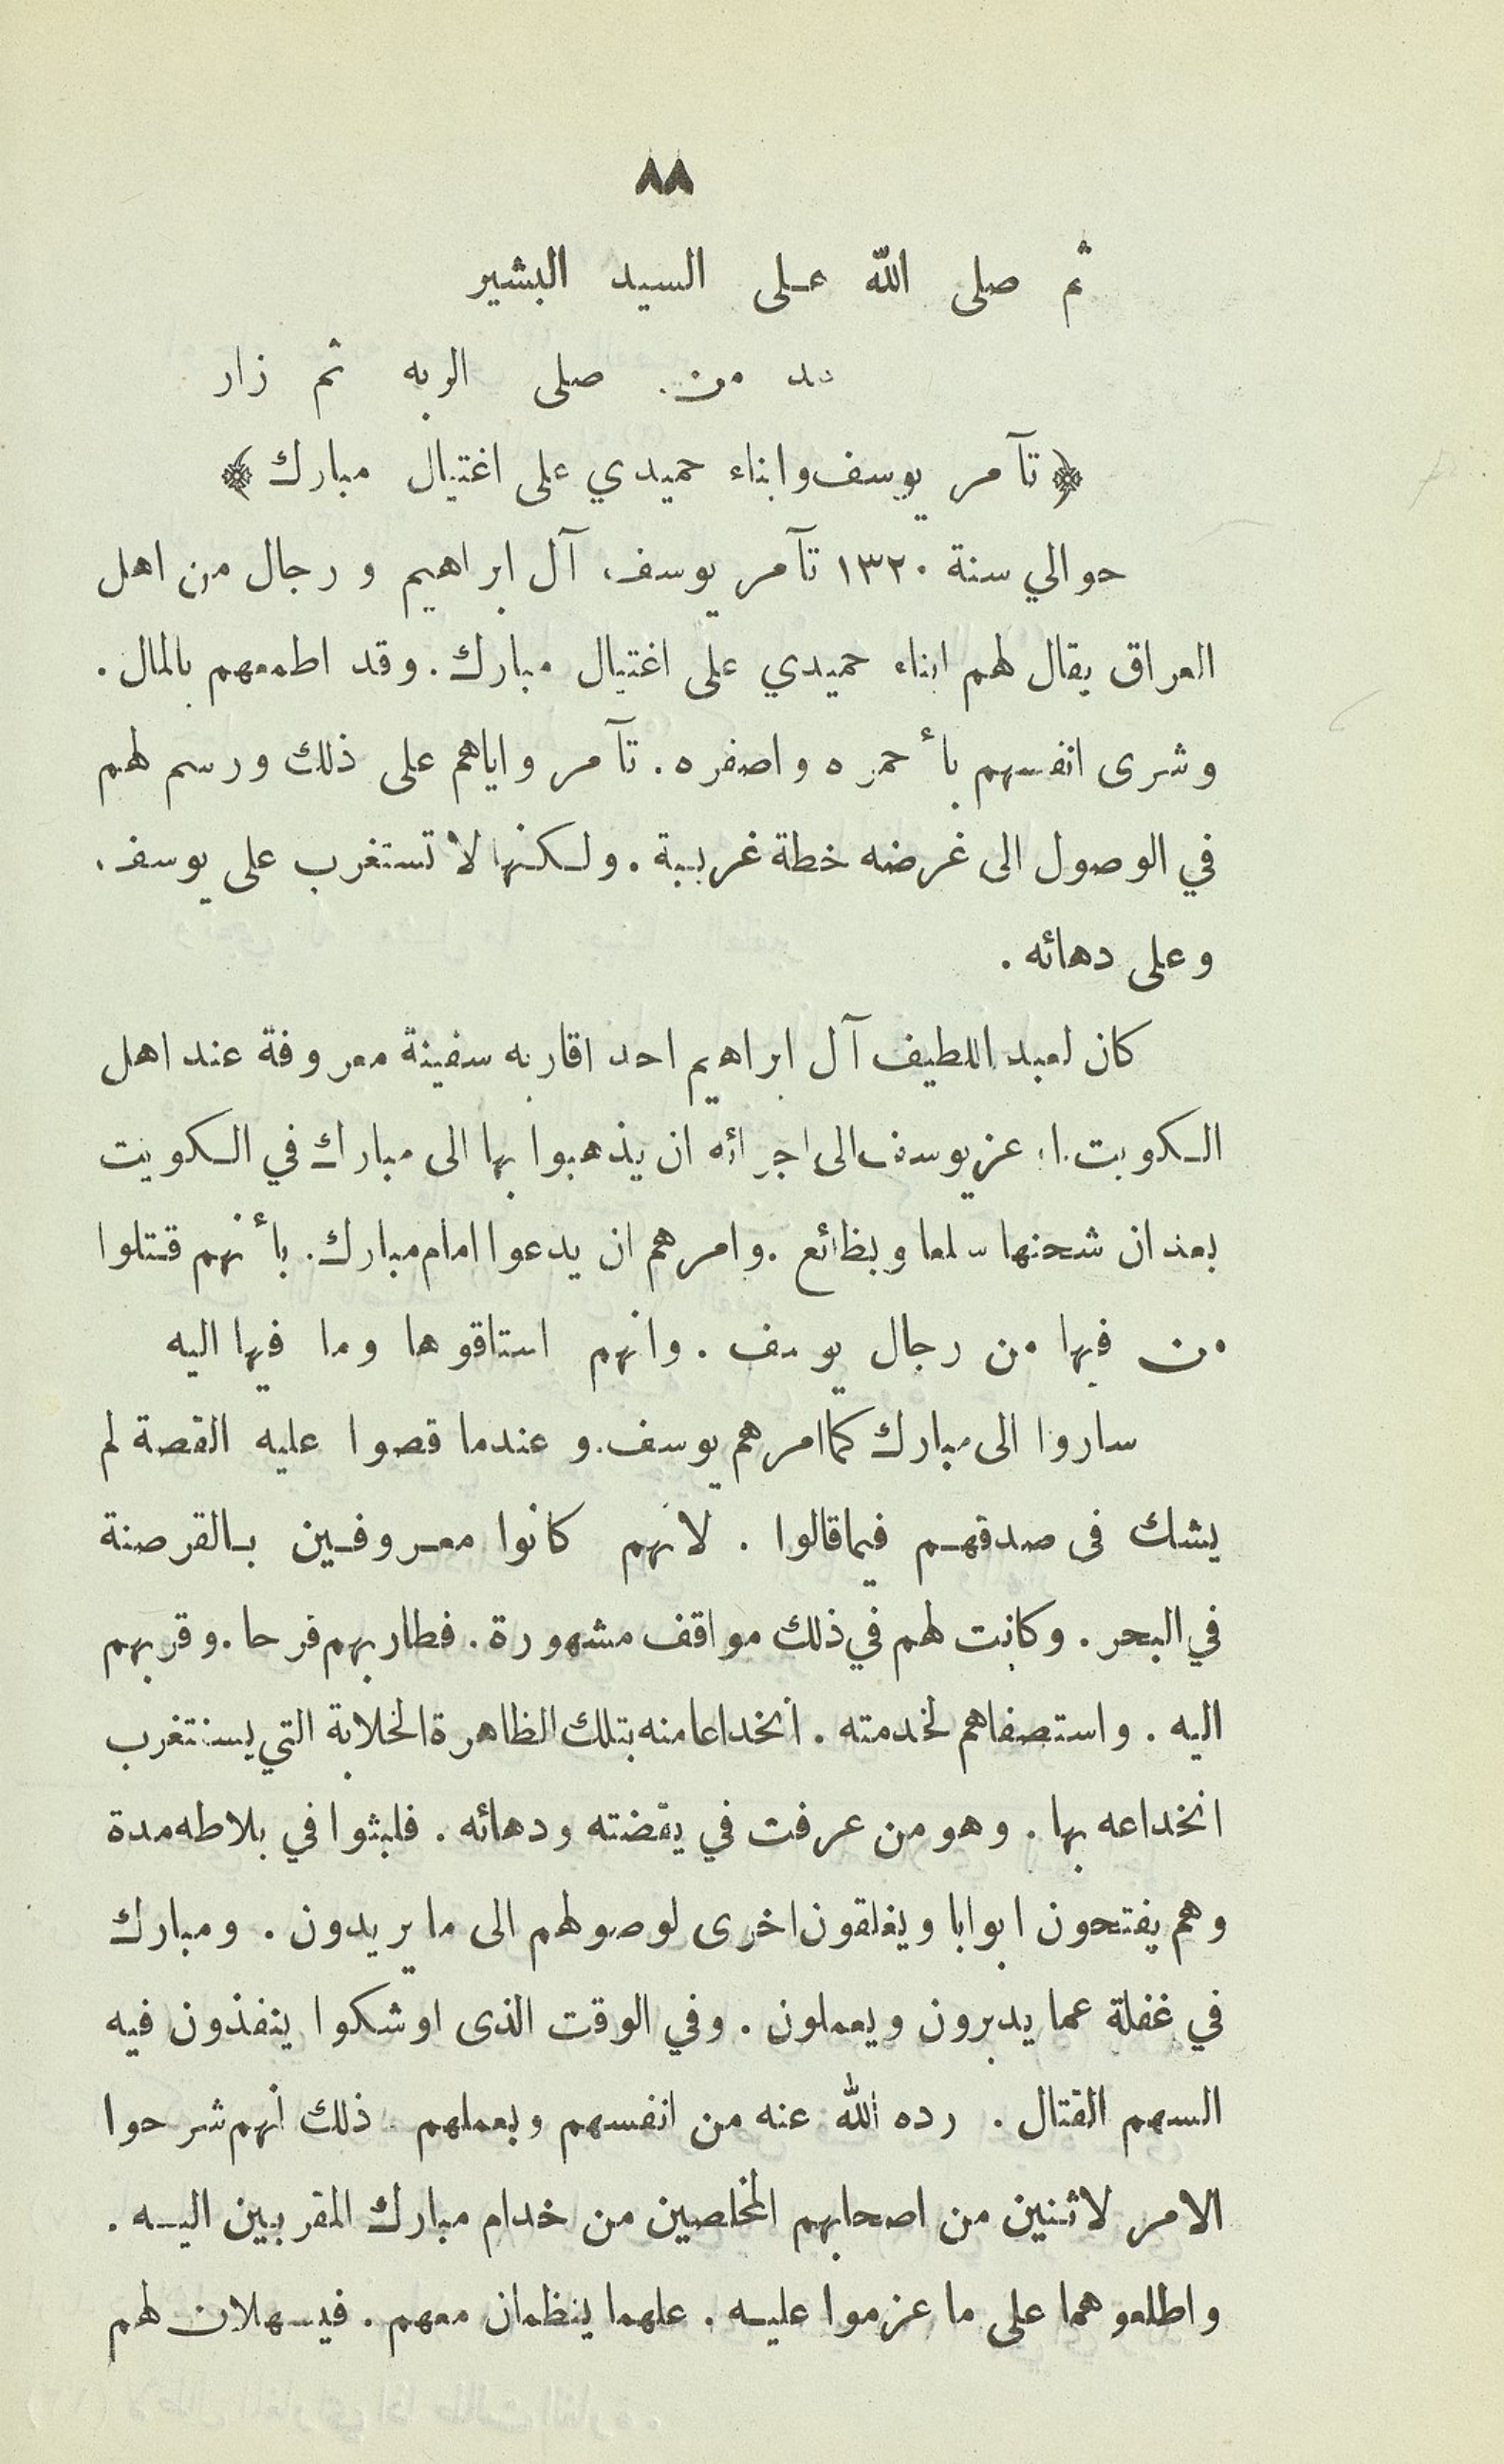 ٨٨
ثم صلى الله على السيد البشير
من صلى لربه ثم زار
﴿ تآمر يوسف وابناء حميدي على اغتيال مبارك ﴾
حوالي سنة ١٣٢٠ تآمر يوسف آل ابراهيم ورجال من اهل
العراق يقال لهم ابناء حميدي على اغتيال مبارك . وقد اطمعهم بالمال .
وشرى انفسهم بأحمره واصفره . تآمر واياهم على ذلك ورسم لهم
في الوصول الى غرضه خطة غريبة . ولكنها لا تستغرب على يوسف .
وعلى دهائه .
كان لعبد اللطيف آل ابراهيم احد اقاربه سفينة معروفة عند اهل
الكويت . اوعز يوسف الى اجرائه ان يذهبوا بها الى مبارك في الكويت
بعد ان شحنها سلعا وبظائع . وامرهم ان يدعوا امام مبارك . بأنهم قتلوا
من فيها من رجال يوسف . وانهم استاقوها وما فيها اليه
ساروا الى مبارك كما امرهم يوسف . وعندما قصوا عليه القصة لم
يشك فى صدقهم فيما قالوا . لانهم كانوا معروفين بالقرصنة
في البحر . وكانت لهم في ذلك مواقف مشهورة . فطار بهم فرحا . وقربهم
اليه . واستصفاهم لخدمته . انخداعا منه بتلك الظاهرة الخلابة التي يستغرب
انخداعه بها . وهو من عرفت في يقضته ودهائه . فلبثوا في بلاطه مدة
وهم يفتحون ابوابا ويغلقون اخرى لوصولهم الى ما يريدون . ومبارك
في غفلة عما يدبرون ويعملون . وفي الوقت الذى اوشكوا ينفذون فيه
السهم القتال . رده الله عنه من انفسهم وبعملهم . ذلك انهم شرحوا
الامر لاثنين من اصحابهم المخلصين من خدام مبارك المقربين اليه .
واطلعوهما على ما عزموا عليه . علهما ينظمان معهم . فيسهلان لهم